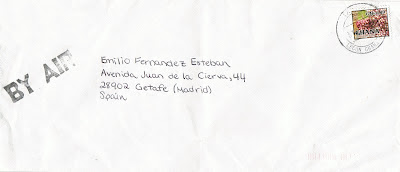 BY AIR
Emilio Fernandez Esteban
Avenida Juan de la Cierva, 44
28902 Getafe (Madrid)
Spain